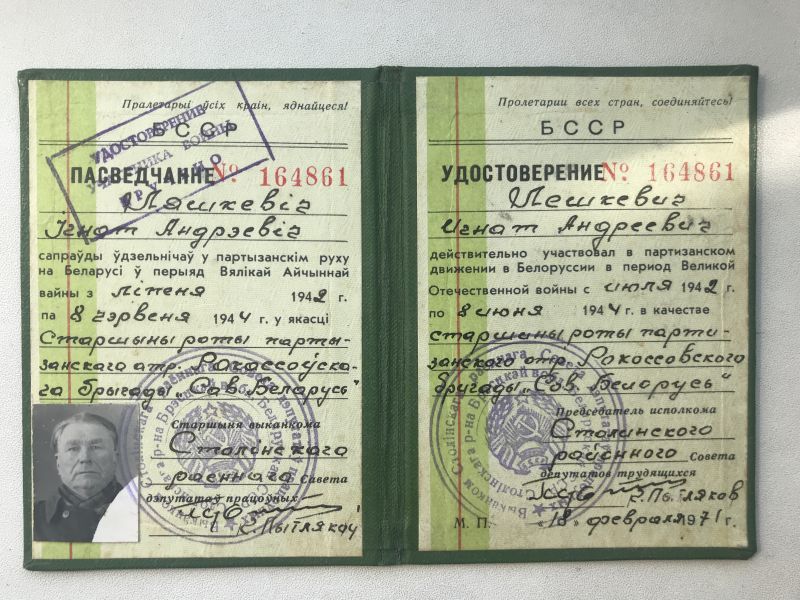 Пралетарыі ўсіх краін, яднайцеся!
БССР
УДОСТОВЕРЕНИЕ
УЧАСТНИКА ВОЙНЫ
ПАСВЕДЧАННЕ № 164861
Ляшкевіч
Ігнат Андрэевіч
сапраўды ўдзельнічаў у партызанскім руху
на Беларусі ў перыяд Вялікай Айчыннай
вайны з ліпеня 1942 г.
па 8 чэрвеня 1944 г. у якасці
Старшыны роты парты-
занскага атр. Ракассоўска-
га брыгады „Сав. Беларусь"
Старшыня выканкома
Столінскага
раённага Савета
дэпутатаў працоўных
К. Пытлякоў
Пролетарии всех стран, соединяйтесь!
БССР
УДОСТОВЕРЕНИЕ № 164861
Лешкевич
Игнат Андреевич
действительно участвовал в партизанском
движении в Белоруссии в период Великой
Отечественной войны с июля 1942 г.
по 8 июня 1944 г. в качестве
старшины роты парти-
занского отр. Рокоссовского
бригады „Сов. Белорусь"
Председатель исполкома
Столинского
районного Совета
депутатов трудящихся
К. Пытляков
М. П. „18" февраля 1971 г.